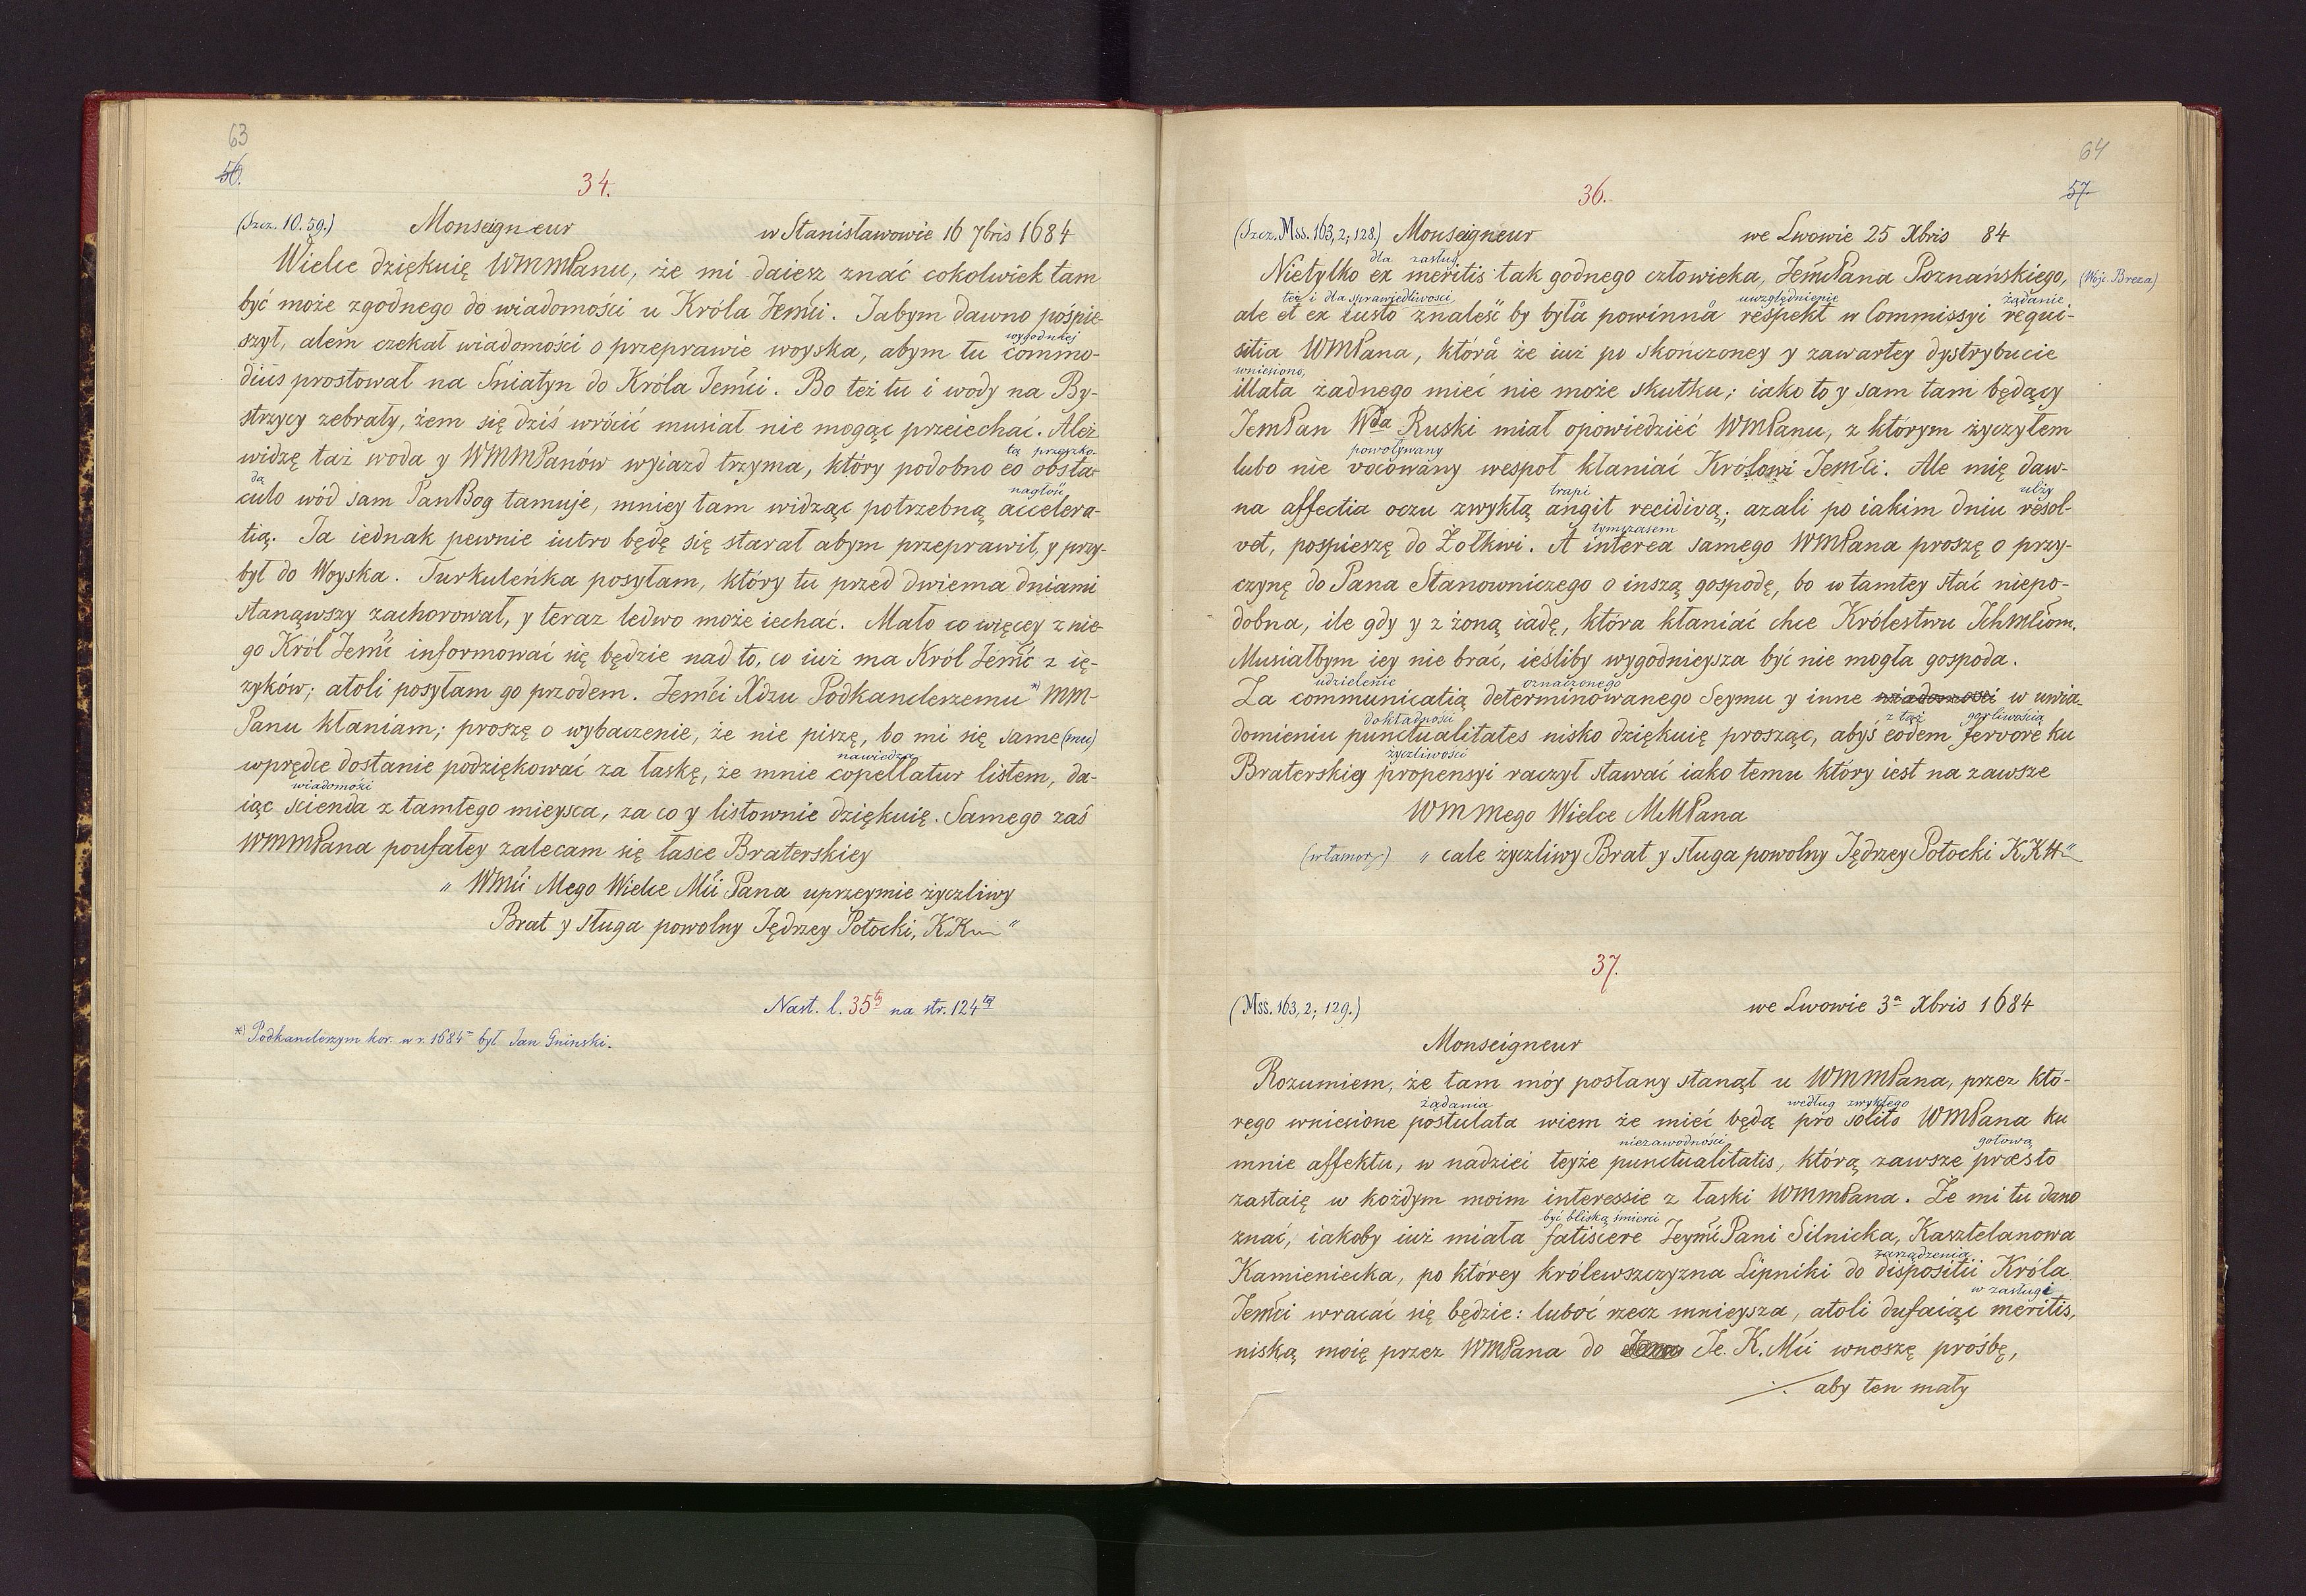 63
56.
34.
(Szcz. 10. 59.) Monseigneur w Stanisławowie 16 7bris 1684
Wielce dziękuię WMMPanu, że mi daiesz znać cokolwiek tam
być może zgodnego do wiadomości u Króla Jemći. Jabym dawno pośpie-
wygodniej
szył, alem czekał wiadomości o przeprawie woyska, abym tu commo-
dius prostował na Śniatyn do Króla Jemći. Bo też tu i wody na By-
strzycy zebrały, żem się dziś wrócić musiał nie mogąc przeiechać. Ależ
tą przeszko-
widzę taż woda y WMMPanów wyiazd trzyma, który podobno eo obsta-
dą nagłość
culo wód sam PanBog tamuje, mniey tam widząc potrzebną accelera-
tią. Ja iednak pewnie iutro będę się starał abym przeprawił, y przy-
był do Woyska. Turkuleńka posyłam, który tu przed dwiema dniami
stanąwszy zachorował, y teraz ledwo może iechać. Mało co więcey z nie-
go Król Jemć informować się będzie nad to, co iuż ma Król Jemć z ię-
zyków; atoli posyłam go przodem. Jemći Xdzu Podkanclerzemu *) MM-
Panu kłaniam; proszę o wybaczenie, że nie piszę, bo mi się same(mu)
nawiedza
wprędce dostanie podziękować za łaskę, że mnie copellatur listem, da-
wiadomości
iąc scienda z tamtego mieysca, za co y listownie dziękuię. Samego zaś
WMMPana poufałey zalecam się łasce Braterskiey
„ WMći Mego Wielce Mći Pana uprzeymie życzliwy
Brat y sługa powolny Jędrzey Potocki, KK "
Nast. l. 35ty na str. 124tej
*) Podkanclerzym kor. w r. 1684 był Jan Gninski.
64
57.
36.
(Szcz. Mss. 163, 2; 128.) Monseigneur we Lwowie 25 Xbris 84
dla zasług
Nietylko ex meritis tak godnego człowieka, JemćPana Poznańskiego, (Wojc. Breza)
też i dla sprawiedliwości uwzględnienie żądanie
ale et ex iusto znaleść by była powinna respekt w Commissyi requi-
sitia WMPana, która że iuż po skończoney y zawartey dystrybucie
wniesiono,
illata żadnego mieć nie może skutku; iako to y sam tam będący
JemPan Wda Ruski miał opowiedzieć WMPanu, z którym życzyłem
powoływany
lubo nie vocowany wespoł kłaniać Królowi Jemći. Ale mię daw-
trapi ulży
na affectia oczu zwykłą angit recidivą; azali po iakim dniu resol-
tymczasem
vet, pospieszę do Żołkwi. A interea samego WMPana proszę o przy-
czynę do Pana Stanowniczego o inszą gospodę, bo w tamtey stać niepo-
dobna, ile gdy y z żoną iadę, która kłaniać chce Królestwu Ichmćiom.
Musiałbym iey nie brać, ieśliby wygodnieysza być nie mogła gospoda.
udzielenie oznaczonego
Za communicatią determinowanego Seymu y inne wiadomości w uwia-
dokładności z tąż gorliwością
domieniu punctualitates nisko dziękuię prosząc, abyś eodem fervore ku
życzliwości
Braterskiey propensyi raczył stawać iako temu który iest na zawsze
WMMego Wielce MMPana
(własnor.) „ cale życzliwy Brat y sługa powolny Jędrzey Potocki KKH "
37.
(Mss. 163, 2; 129.) we Lwowie 3a Xbris 1684
Monseigneur
Rozumiem, że tam móy posłany stanął u WMMPana, przez któ-
żądania według zwykłego
rego wniesione postulata wiem że mieć będą pro solito WMPana ku
niezawodności gotową
mnie affektu, w nadziei teyże punctualitatis, którą zawsze præsto
zastaię w każdym moim interessie z łaski WMMPana. Że mi tu dano
być bliską śmierci
znać, iakoby iuż miała fatiscere JeymćPani Silnicka, Kasztelanowa
zarządzenia
Kamieniecka, po którey królewszczyzna Lipniki do dispositii Króla
w zasługi
Jemći wracać się będzie: luboć rzecz mnieysza, atoli dufaiąc meritis,
niską moię przez WMPana do Je. K. Mći wnoszę prośbę,
./. aby ten mały